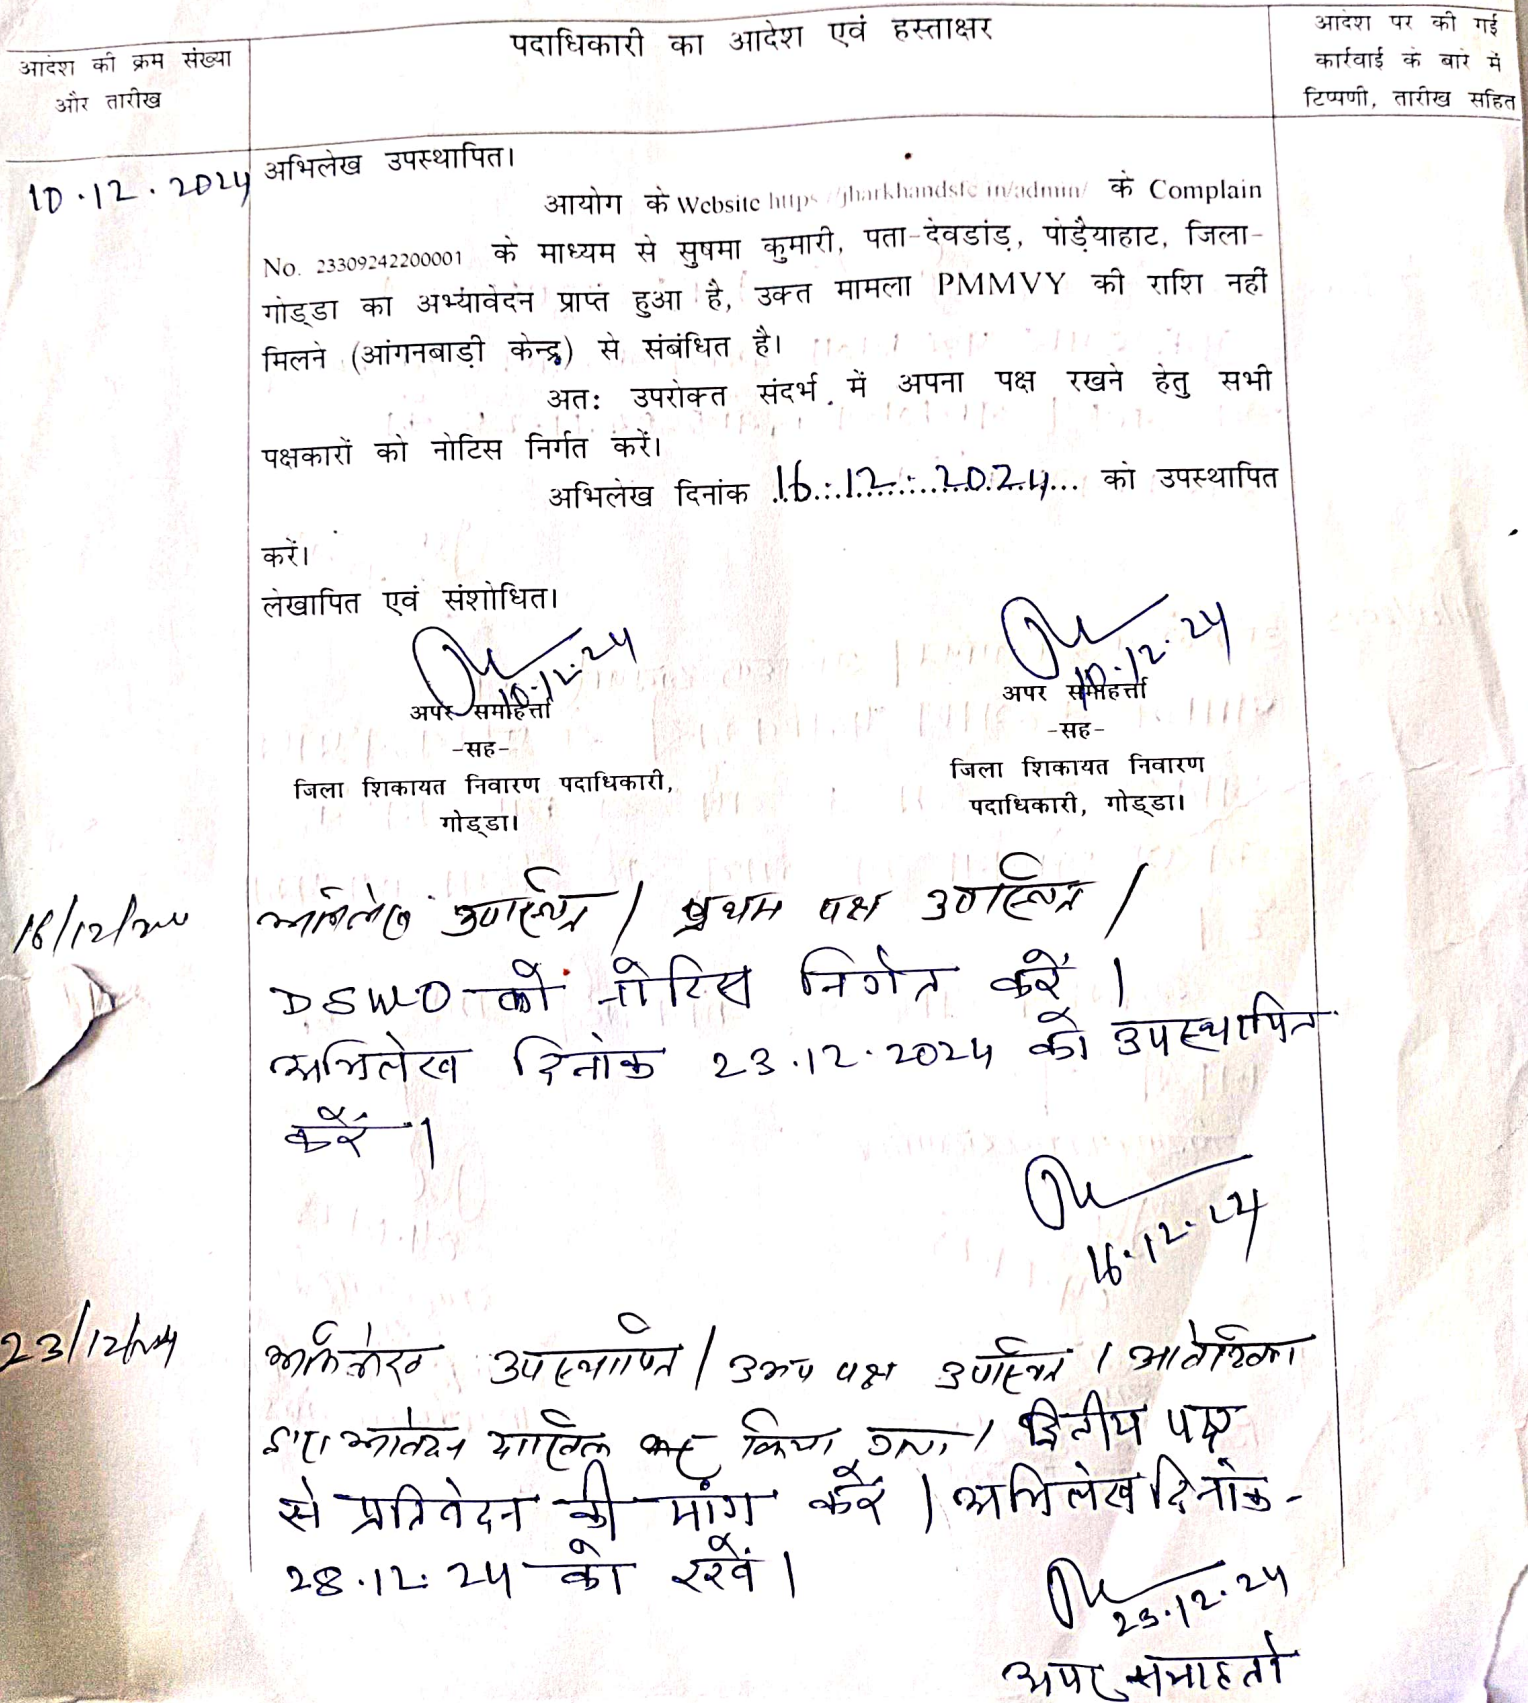 आदेश की क्रम संख्या
और तारीख
पदाधिकारी का आदेश एवं हस्ताक्षर
आदेश पर की गई
कार्रवाई के बारे में
टिप्पणी, तारीख सहित
10.12.2024
अभिलेख उपस्थापित।
आयोग के Website https://jharkhandsfc.in/admin/ के Complain
No. 23309242200001 के माध्यम से सुषमा कुमारी, पता-देवडांड़, पोड़ैयाहाट, जिला-
गोड्डा का अभ्यावेदन प्राप्त हुआ है, उक्त मामला PMMVY की राशि नहीं
मिलने (आंगनबाड़ी केन्द्र) से संबंधित है।
अतः उपरोक्त संदर्भ में अपना पक्ष रखने हेतु सभी
पक्षकारों को नोटिस निर्गत करें।
अभिलेख दिनांक 16.12.2024 को उपस्थापित
करें।
लेखापित एवं संशोधित।
10.12.24
अपर समाहर्त्ता
-सह-
जिला शिकायत निवारण पदाधिकारी,
गोड्डा।
10.12.24
अपर समाहर्त्ता
-सह-
जिला शिकायत निवारण
पदाधिकारी, गोड्डा।
16/12/
अभिलेख उपस्थित / प्रथम पक्ष उपस्थित /
DSWO को नोटिस निर्गत करें।
अभिलेख दिनांक 23.12.2024 को उपस्थापित
करें।
16.12.24
23/12/24
अभिलेख उपस्थापित / उभय पक्ष उपस्थित / आवेदिका
द्वारा आवेदन दाखिल किया गया / द्वितीय पक्ष
से प्रतिवेदन की मांग करें। अभिलेख दिनांक-
28.12.24 को रखें।
23.12.24
अपर समाहर्ता